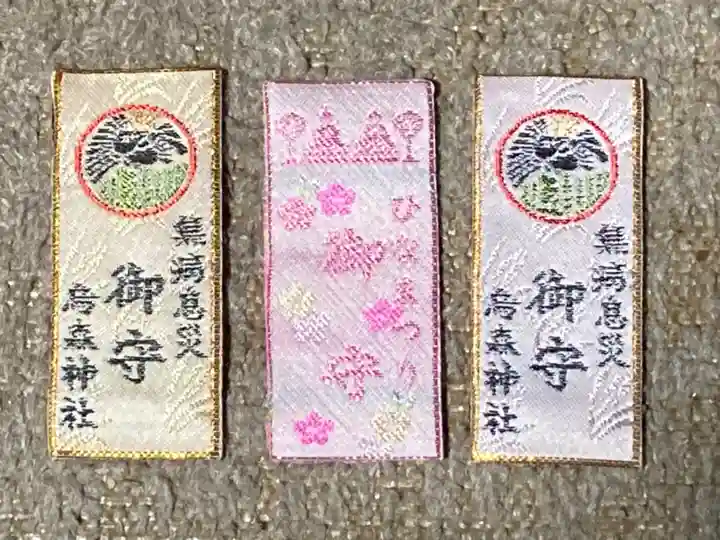 無病息災
御守
烏森神社
ひなまつり
御守
無病息災
御守
烏森神社